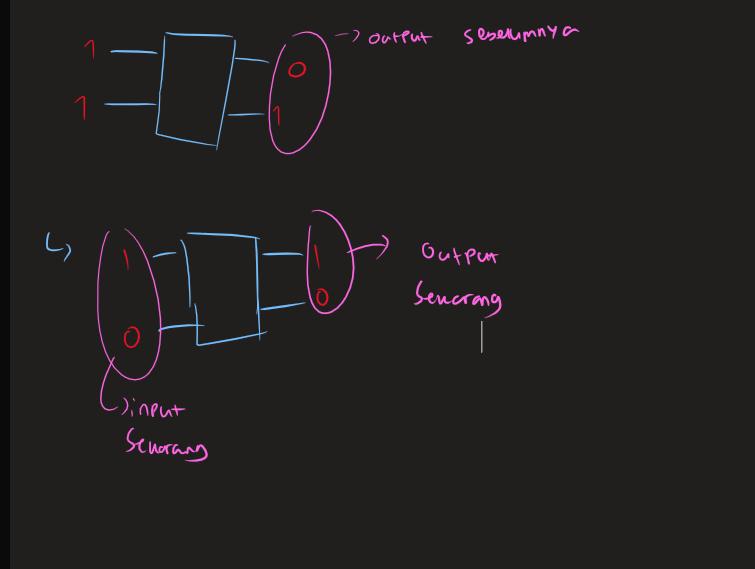 1
0
→ output sebelumnya
1
1
↳
1
1
Output
0
0
Sekarang
input
Sekarang